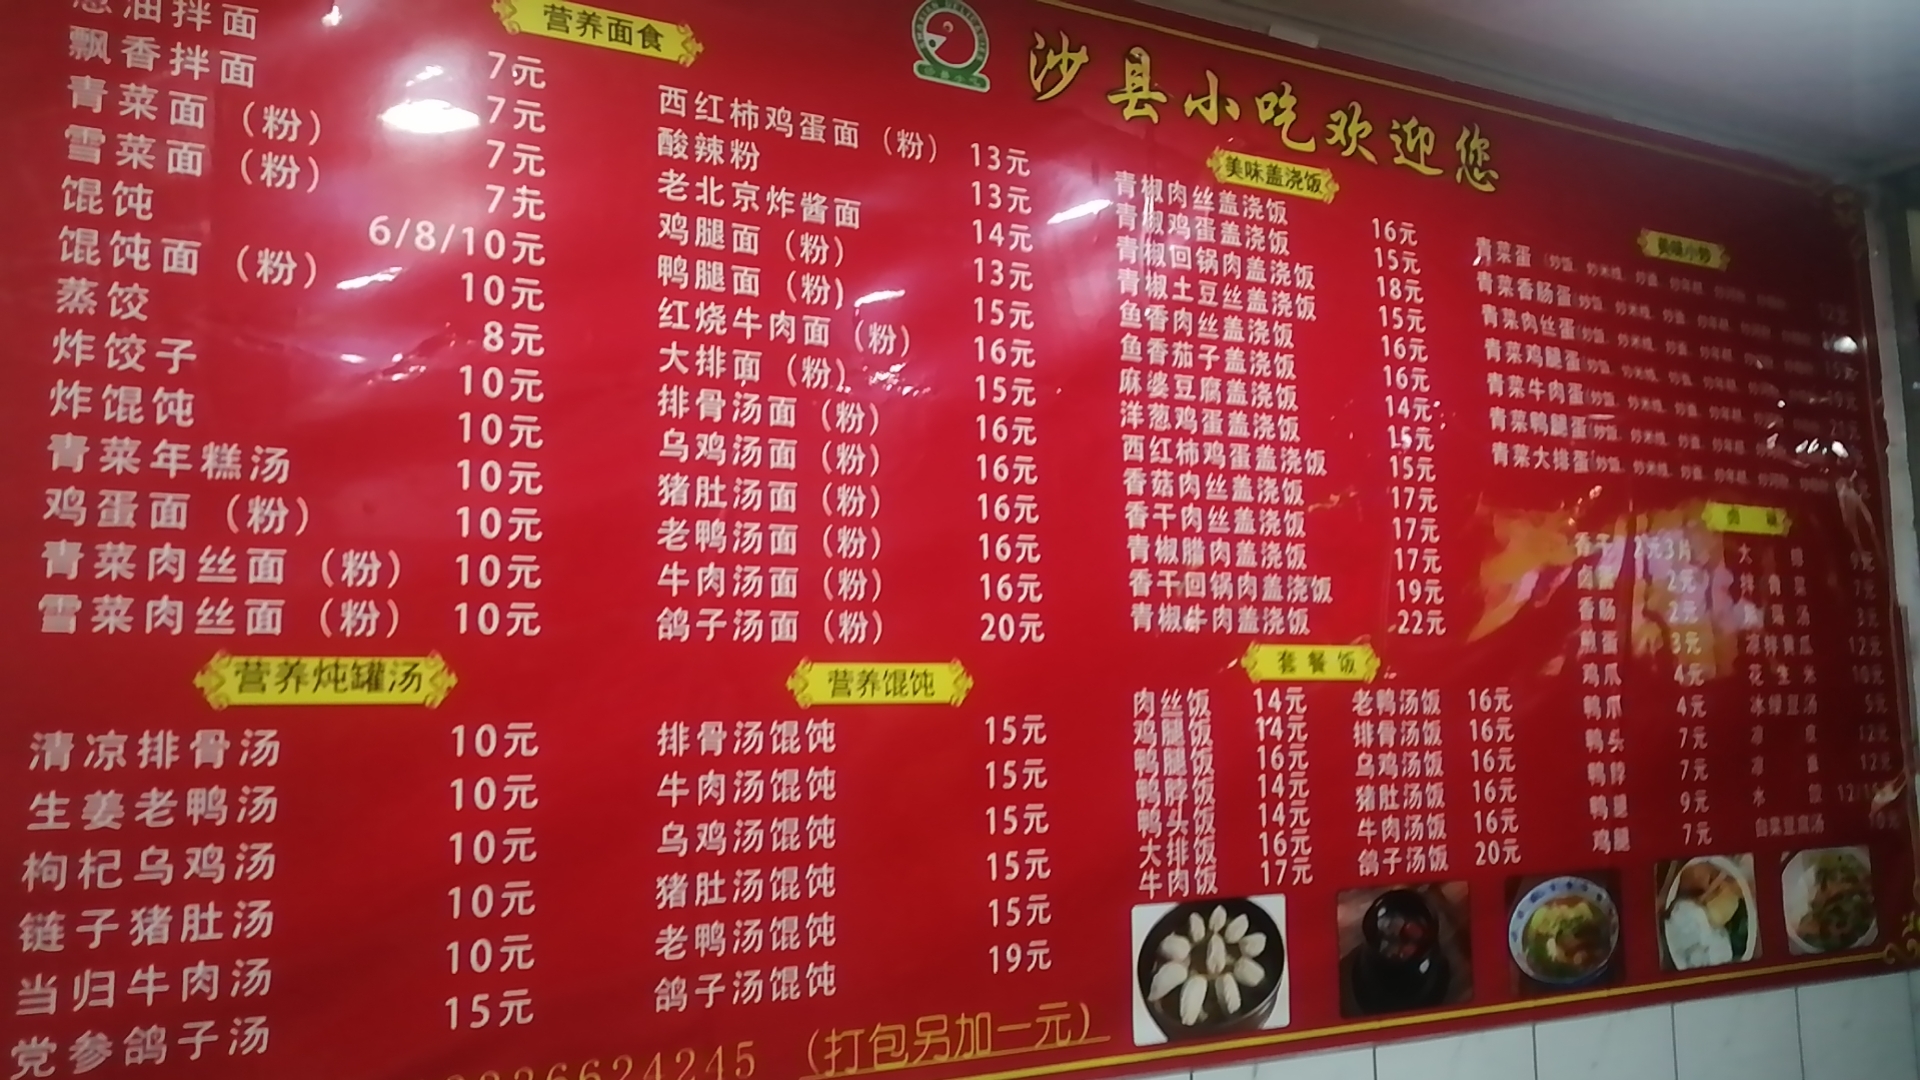 沙县小吃欢迎您
营养面食
葱油拌面 7元
飘香拌面 7元
青菜面（粉） 7元
雪菜面（粉） 7元
馄饨 6/8/10元
馄饨面（粉） 10元
蒸饺 8元
炸饺子 10元
炸馄饨 10元
青菜年糕汤 10元
鸡蛋面（粉） 10元
青菜肉丝面（粉） 10元
雪菜肉丝面（粉） 10元
西红柿鸡蛋面（粉） 13元
酸辣粉 13元
老北京炸酱面 14元
鸡腿面（粉） 13元
鸭腿面（粉） 15元
红烧牛肉面（粉） 16元
大排面（粉） 15元
排骨汤面（粉） 16元
乌鸡汤面（粉） 16元
猪肚汤面（粉） 16元
老鸭汤面（粉） 16元
牛肉汤面（粉） 16元
鸽子汤面（粉） 20元
营养炖罐汤
清凉排骨汤 10元
生姜老鸭汤 10元
枸杞乌鸡汤 10元
链子猪肚汤 10元
当归牛肉汤 10元
党参鸽子汤 15元
营养馄饨
排骨汤馄饨 15元
牛肉汤馄饨 15元
乌鸡汤馄饨 15元
猪肚汤馄饨 15元
老鸭汤馄饨 15元
鸽子汤馄饨 19元
美味盖浇饭
青椒肉丝盖浇饭 16元
青椒鸡蛋盖浇饭 15元
青椒回锅肉盖浇饭 18元
青椒土豆丝盖浇饭 15元
鱼香肉丝盖浇饭 16元
鱼香茄子盖浇饭 16元
麻婆豆腐盖浇饭 14元
洋葱鸡蛋盖浇饭 15元
西红柿鸡蛋盖浇饭 15元
香菇肉丝盖浇饭 17元
香干肉丝盖浇饭 17元
青椒腊肉盖浇饭 17元
香干回锅肉盖浇饭 19元
青椒牛肉盖浇饭 22元
套餐饭
肉丝饭 14元
鸡腿饭 14元
鸭腿饭 16元
鸭脖饭 14元
鸭头饭 14元
大排饭 16元
牛肉饭 17元
老鸭汤饭 16元
排骨汤饭 16元
乌鸡汤饭 16元
猪肚汤饭 16元
牛肉汤饭 16元
鸽子汤饭 20元
青菜蛋
青菜香肠蛋
青菜肉丝蛋
青菜鸡腿蛋
青菜牛肉蛋
青菜鸭腿蛋
青菜大排蛋
香干 2元3片
2元
香肠 2元
煎蛋 3元
鸡爪 4元
鸭爪 4元
鸭头 7元
鸭脖 7元
鸭腿 9元
鸡腿 7元
9元
7元
3元
凉拌黄瓜 12元
花生米 10元
冰绿豆汤 5元
6624245
（打包另加一元）